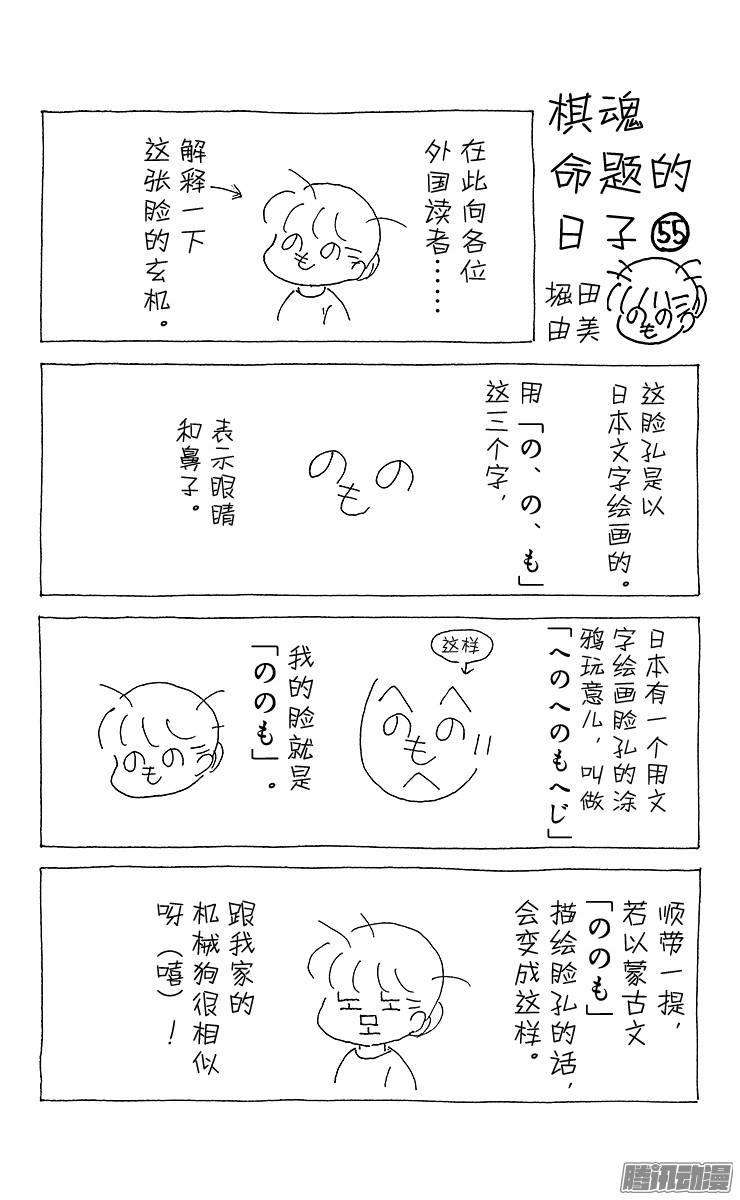 棋魂
命题的
日子55
堀田
由美
のもの
在此向各位
外国读者……
解释一下
这张脸的玄机。
のもの
这脸孔是以
日本文字绘画的。
用「の、の、も」
这三个字，
のもの
表示眼睛
和鼻子。
日本有一个用文
字绘画脸孔的涂
鸦玩意儿，叫做
「へのへのもへじ」
这样
へへ
のもの
へ〃
我的脸就是
「ののも」。
のもの
顺带一提，
若以蒙古文
「ののも」
描绘脸孔的话，
会变成这样。
跟我家的
机械狗很相似
呀（嘻）！
腾讯动漫